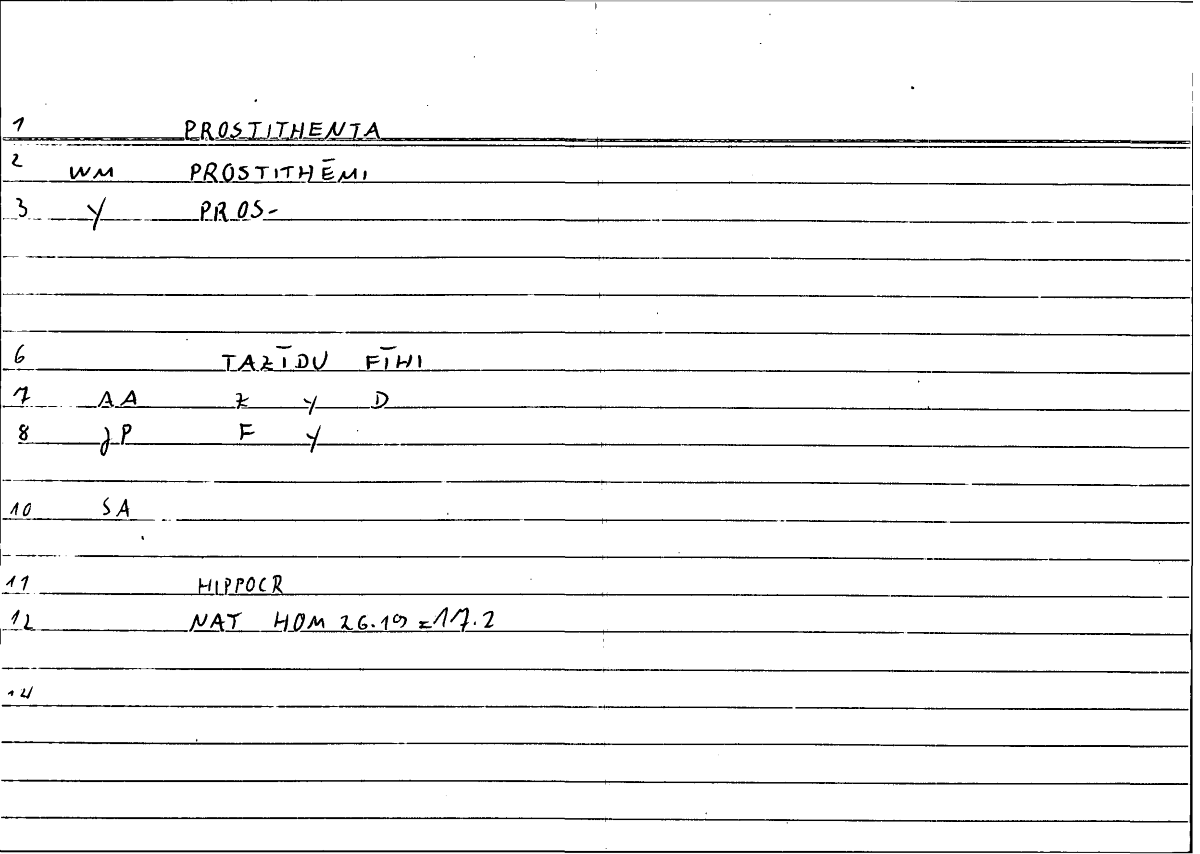 1 PROSTITHENTA
2 WM PROSTITHĒMI
3 Y PROS-
6 TAZĪDU FĪHI
7 AA Z Y D
8 JP F Y
10 SA
11 HIPPOCR
12 NAT HOM 26.19 = 17.2
14